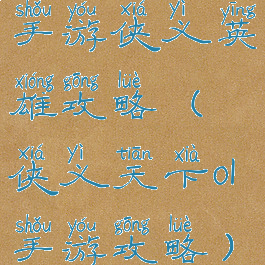 shǒu yóu xiá yì yīng
手游侠义英
xióng gōng lüè
雄攻略（
xiá yì tiān xià
侠义天下ol
shǒu yóu gōng lüè
手游攻略）